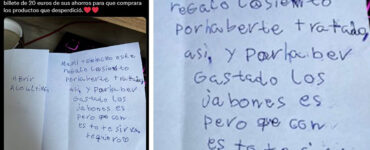 billete de 20 euros de sus ahorros para que comprara
los productos que desperdició.❤️❤️
ABRIR
MAMI
regalo losiento
porhaberte tratado
así, y porhaber
Gastado los
jabones es
pero que con
es to te sir va
tequiero
regalo losiento
porhaberte tratado
así, y porhaber
Gastado los
jabones es
pero que con
es to te sir